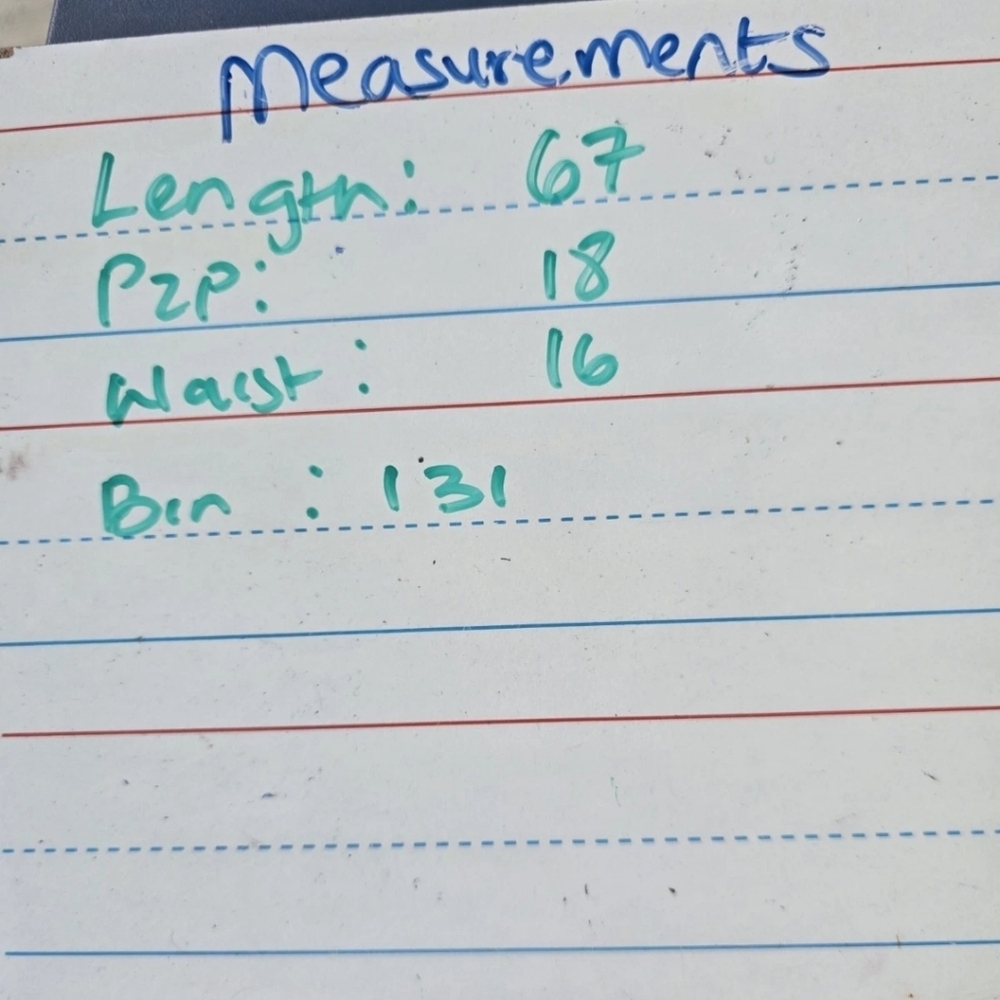 Measurements
Length: 67
P2P: 18
Waist: 16
Bin : 131